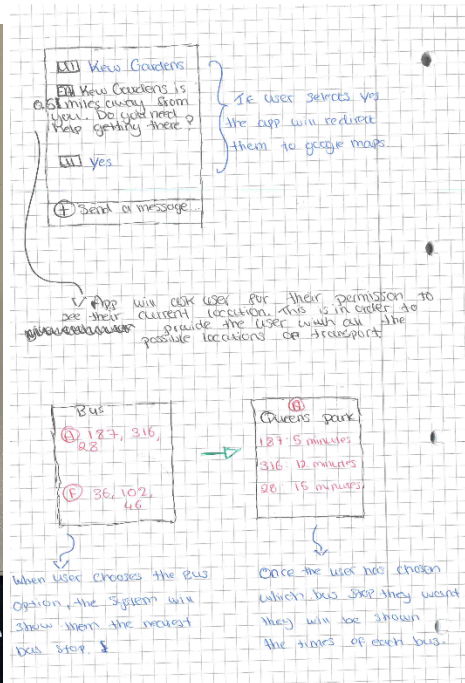 Kew Gardens
Kew Gardens is
0.5 miles away from
you. Do you need
Help getting there?
yes
Send a message...
If user selects yes
the app will redirect
them to google maps.
App will ask user for their permission to
see their current location. This is in order to
provide the user with all the
possible locations of transport
Bus
A 187, 316,
28
F 36, 102,
46
A
Queens park
187 5 minutes
316 12 minutes
28 16 minutes
When user chooses the Bus
option, the system will
show them the nearest
bus stop.
Once the user has chosen
which bus stop they want
they will be shown
the times of each bus.